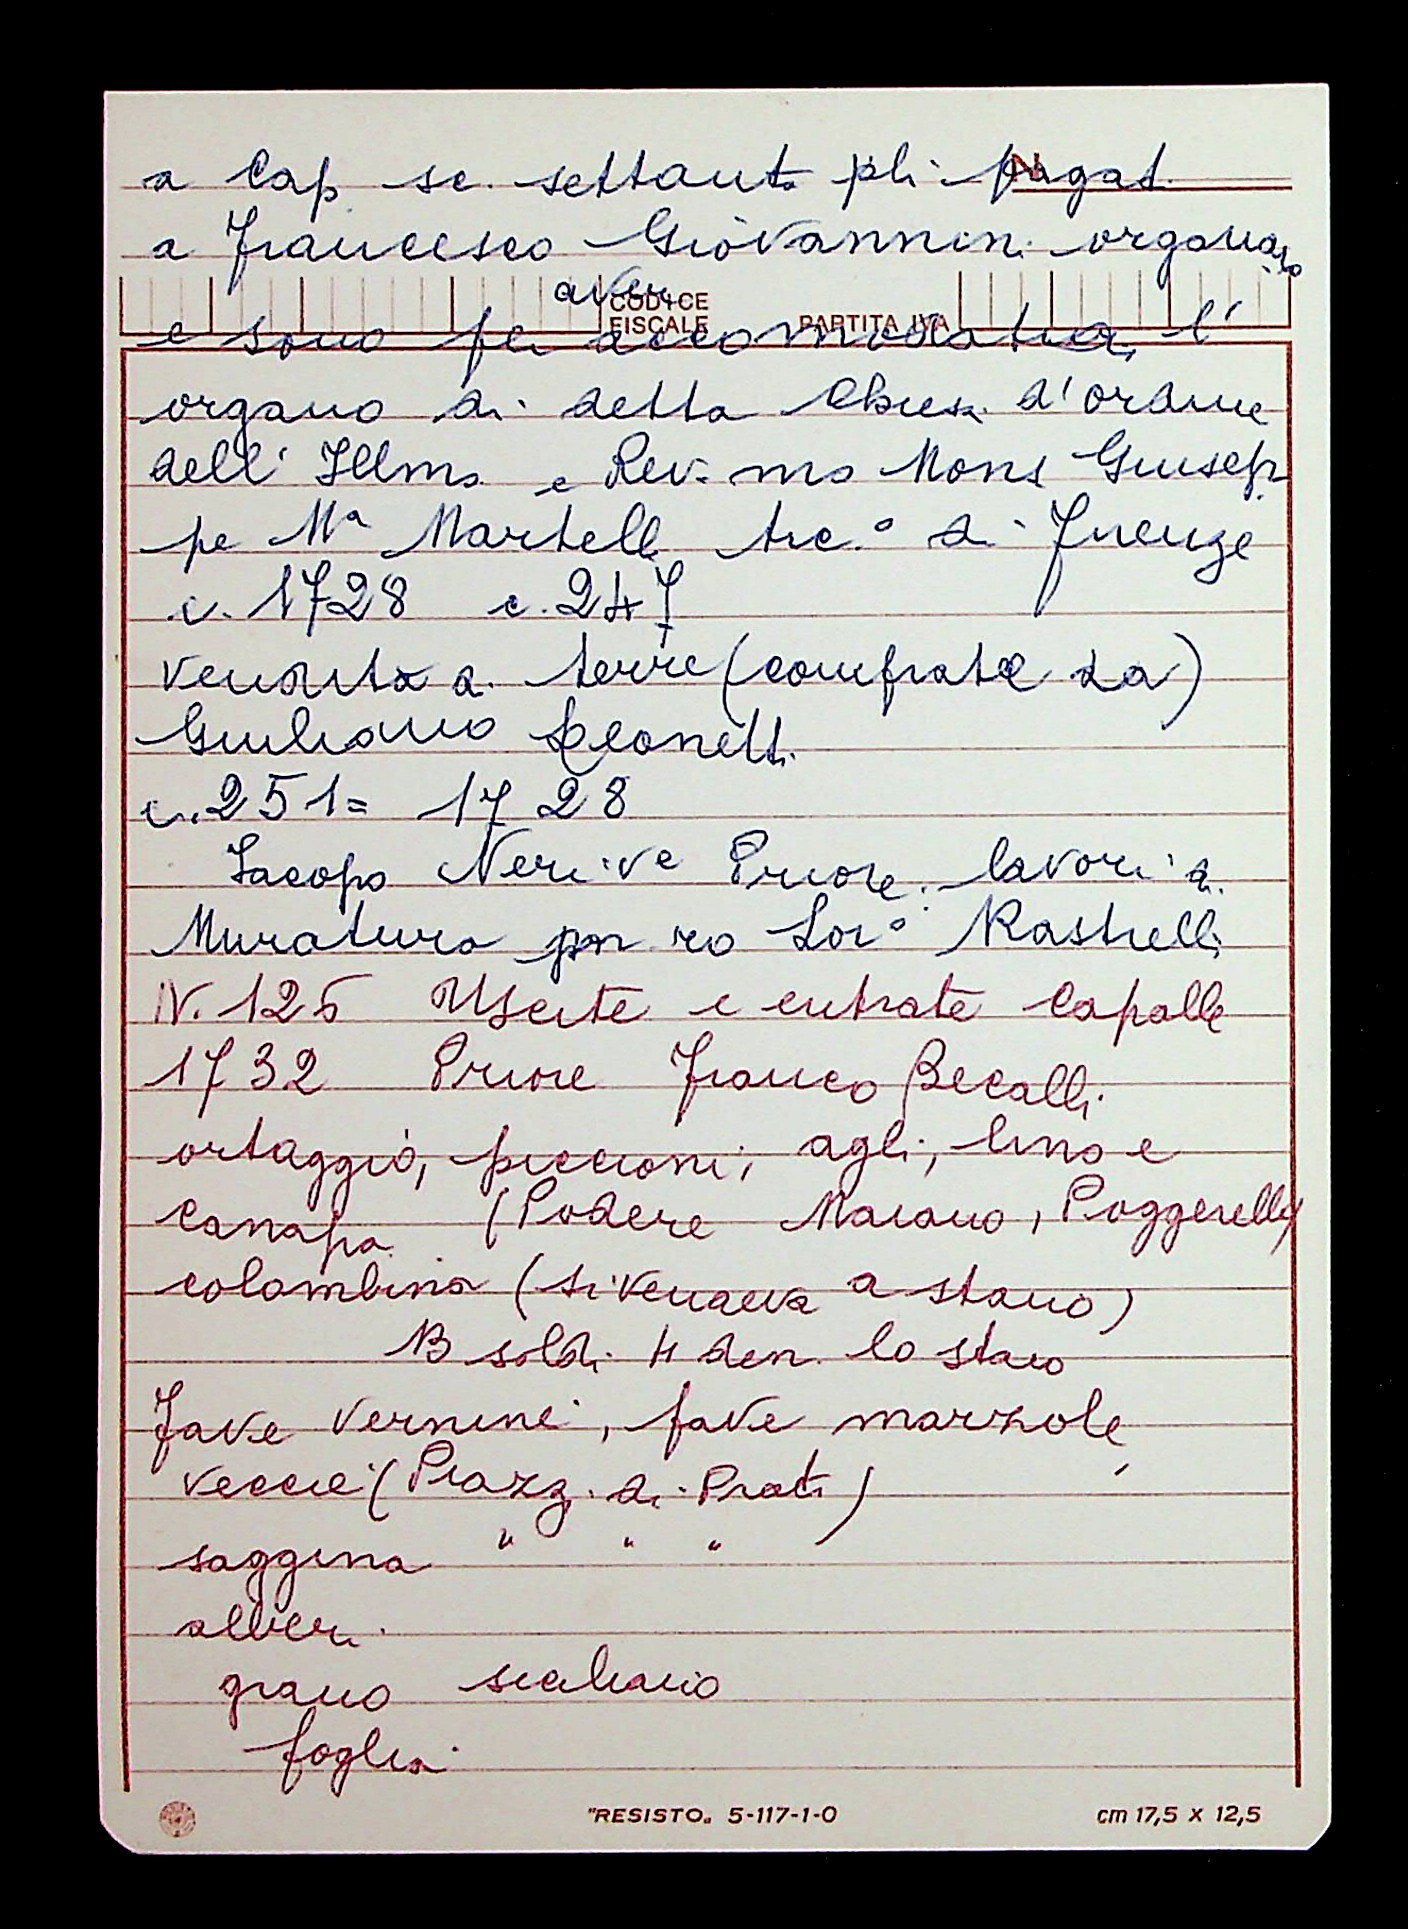 a Cap sc. settanta pli pagat.
N.
a Francesco Giovannini organaro
aver
CODICE FISCALE
PARTITA IVA
e sono per accomodatura l'
organo di detta Chiesa d'ordine
dell' Illmo e Rev.mo Mons Giusep
pe Mª Martelli Arc.º di Firenze
c. 1728 c. 247
vendita di terre (comprate da)
Giuliano Leonetti
c. 251= 1728
Iacopo Neri ve Priore lavori di
Muratura Lor.º Rastrelli
N. 125 Uscite e entrate Capalle
1732 Priore Franco Becalli
ortaggio, piccioni, agli, lino e
canapa (Podere Maiano, Poggerello)
colombina (si vendeva a staio)
13 soldi 4 den. lo staio
fave vernine, fave marzole,
veccie (Piazz. di Prato)
saggina " " "
alberi
grano siciliano
foglia
"RESISTO" 5-117-1-0
cm 17,5 x 12,5